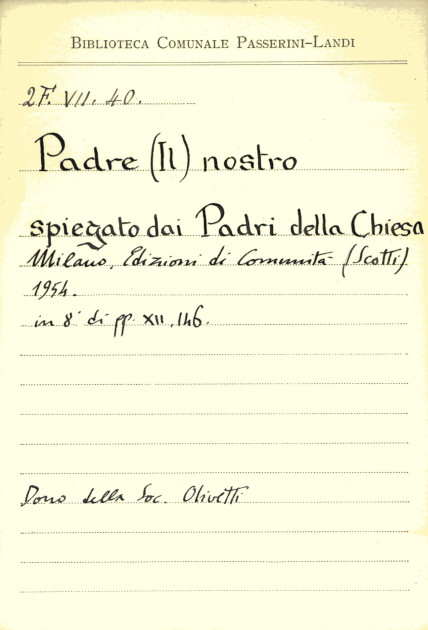 BIBLIOTECA COMUNALE PASSERINI-LANDI
2F. VII. 40.
Padre (Il) nostro
spiegato dai Padri della Chiesa
Milano, Edizioni di Comunità (Scotti)
1954.
in 8° di pp. XII, 146.
Dono della Soc. Olivetti